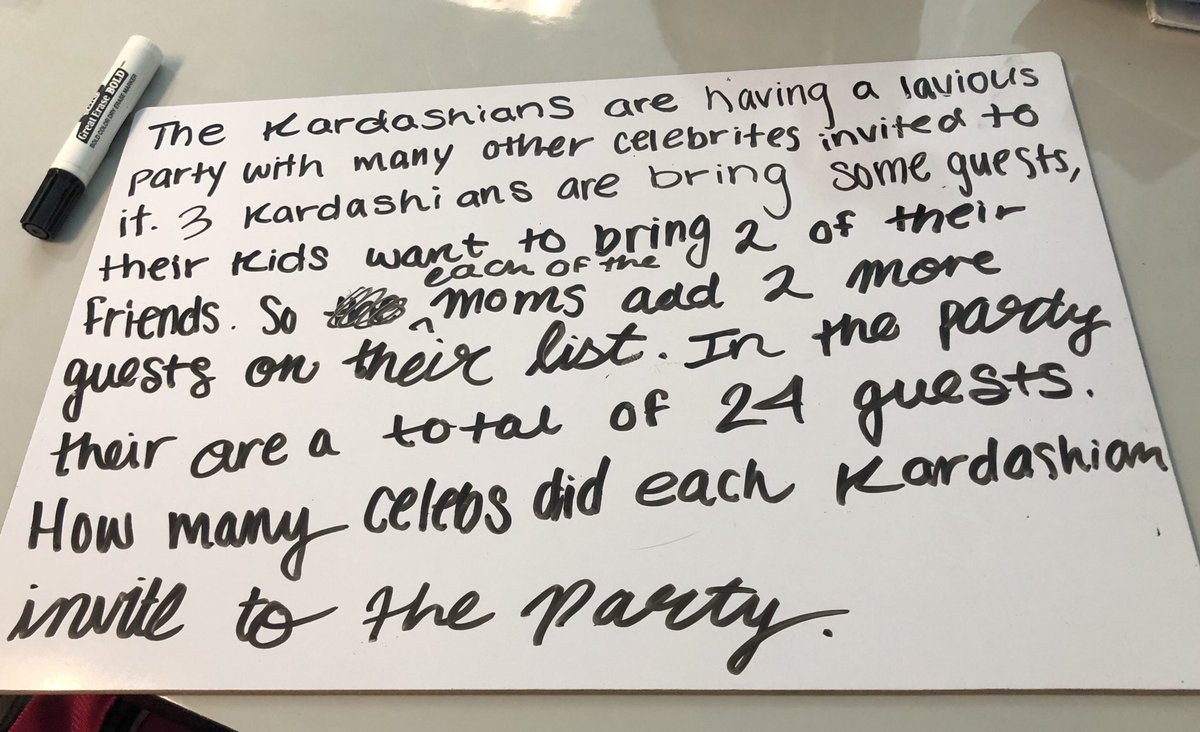 Great Erase BOLD™
BOLD COLOR DRY ERASE MARKER
The Kardashians are having a lavious
party with many other celebrites invited to
it. 3 Kardashians are bring some guests,
their kids want to bring 2 of their
each of the
friends. So ^ moms add 2 more
guests on their list. In the party
their are a total of 24 guests.
How many celebs did each Kardashian
invite to the party.